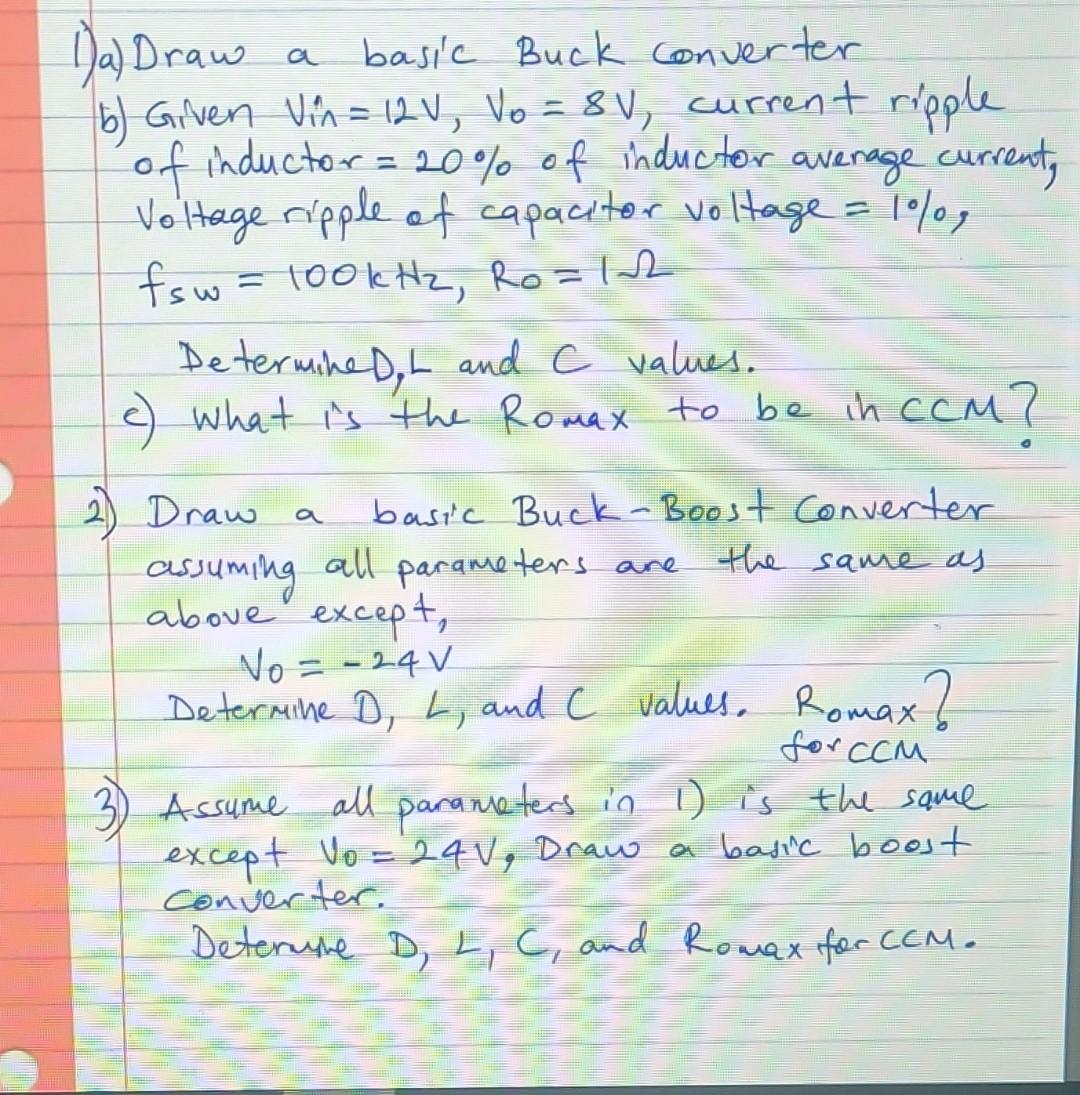 1) a) Draw a basic Buck converter
b) Given Vin = 12V, Vo = 8V, current ripple
of inductor = 20% of inductor average current,
Voltage ripple of capacitor voltage = 1%,
fsw = 100kHz, Ro = 1Ω
Determine D, L and C values.
c) What is the Romax to be in CCM?
2) Draw a basic Buck-Boost Converter
assuming all parameters are the same as
above except,
Vo = -24V
Determine D, L, and C values. Romax?
for CCM
3) Assume all parameters in 1) is the same
except Vo = 24V, Draw a basic boost
converter.
Determine D, L, C, and Romax for CCM.